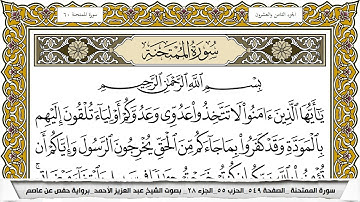 الجزء الثامن والعشرون
سورة الممتحنة ٦٠
سُورَةُ الْمُمْتَحَنَةِ
بِسْمِ اللَّهِ الرَّحْمَٰنِ الرَّحِيمِ
يَٰٓأَيُّهَا الَّذِينَ ءَامَنُوا لَا تَتَّخِذُوا عَدُوِّى وَعَدُوَّكُمْ أَوْلِيَآءَ تُلْقُونَ إِلَيْهِم
بِالْمَوَدَّةِ وَقَدْ كَفَرُوا بِمَا جَآءَكُم مِّنَ الْحَقِّ يُخْرِجُونَ الرَّسُولَ وَإِيَّاكُمْ أَن
سورة الممتحنة _الصفحة ٥٤٩_ الحزب ٥٥_ الجزء ٢٨_ بصوت الشيخ عبد العزيز الأحمد_ برواية حفص عن عاصم